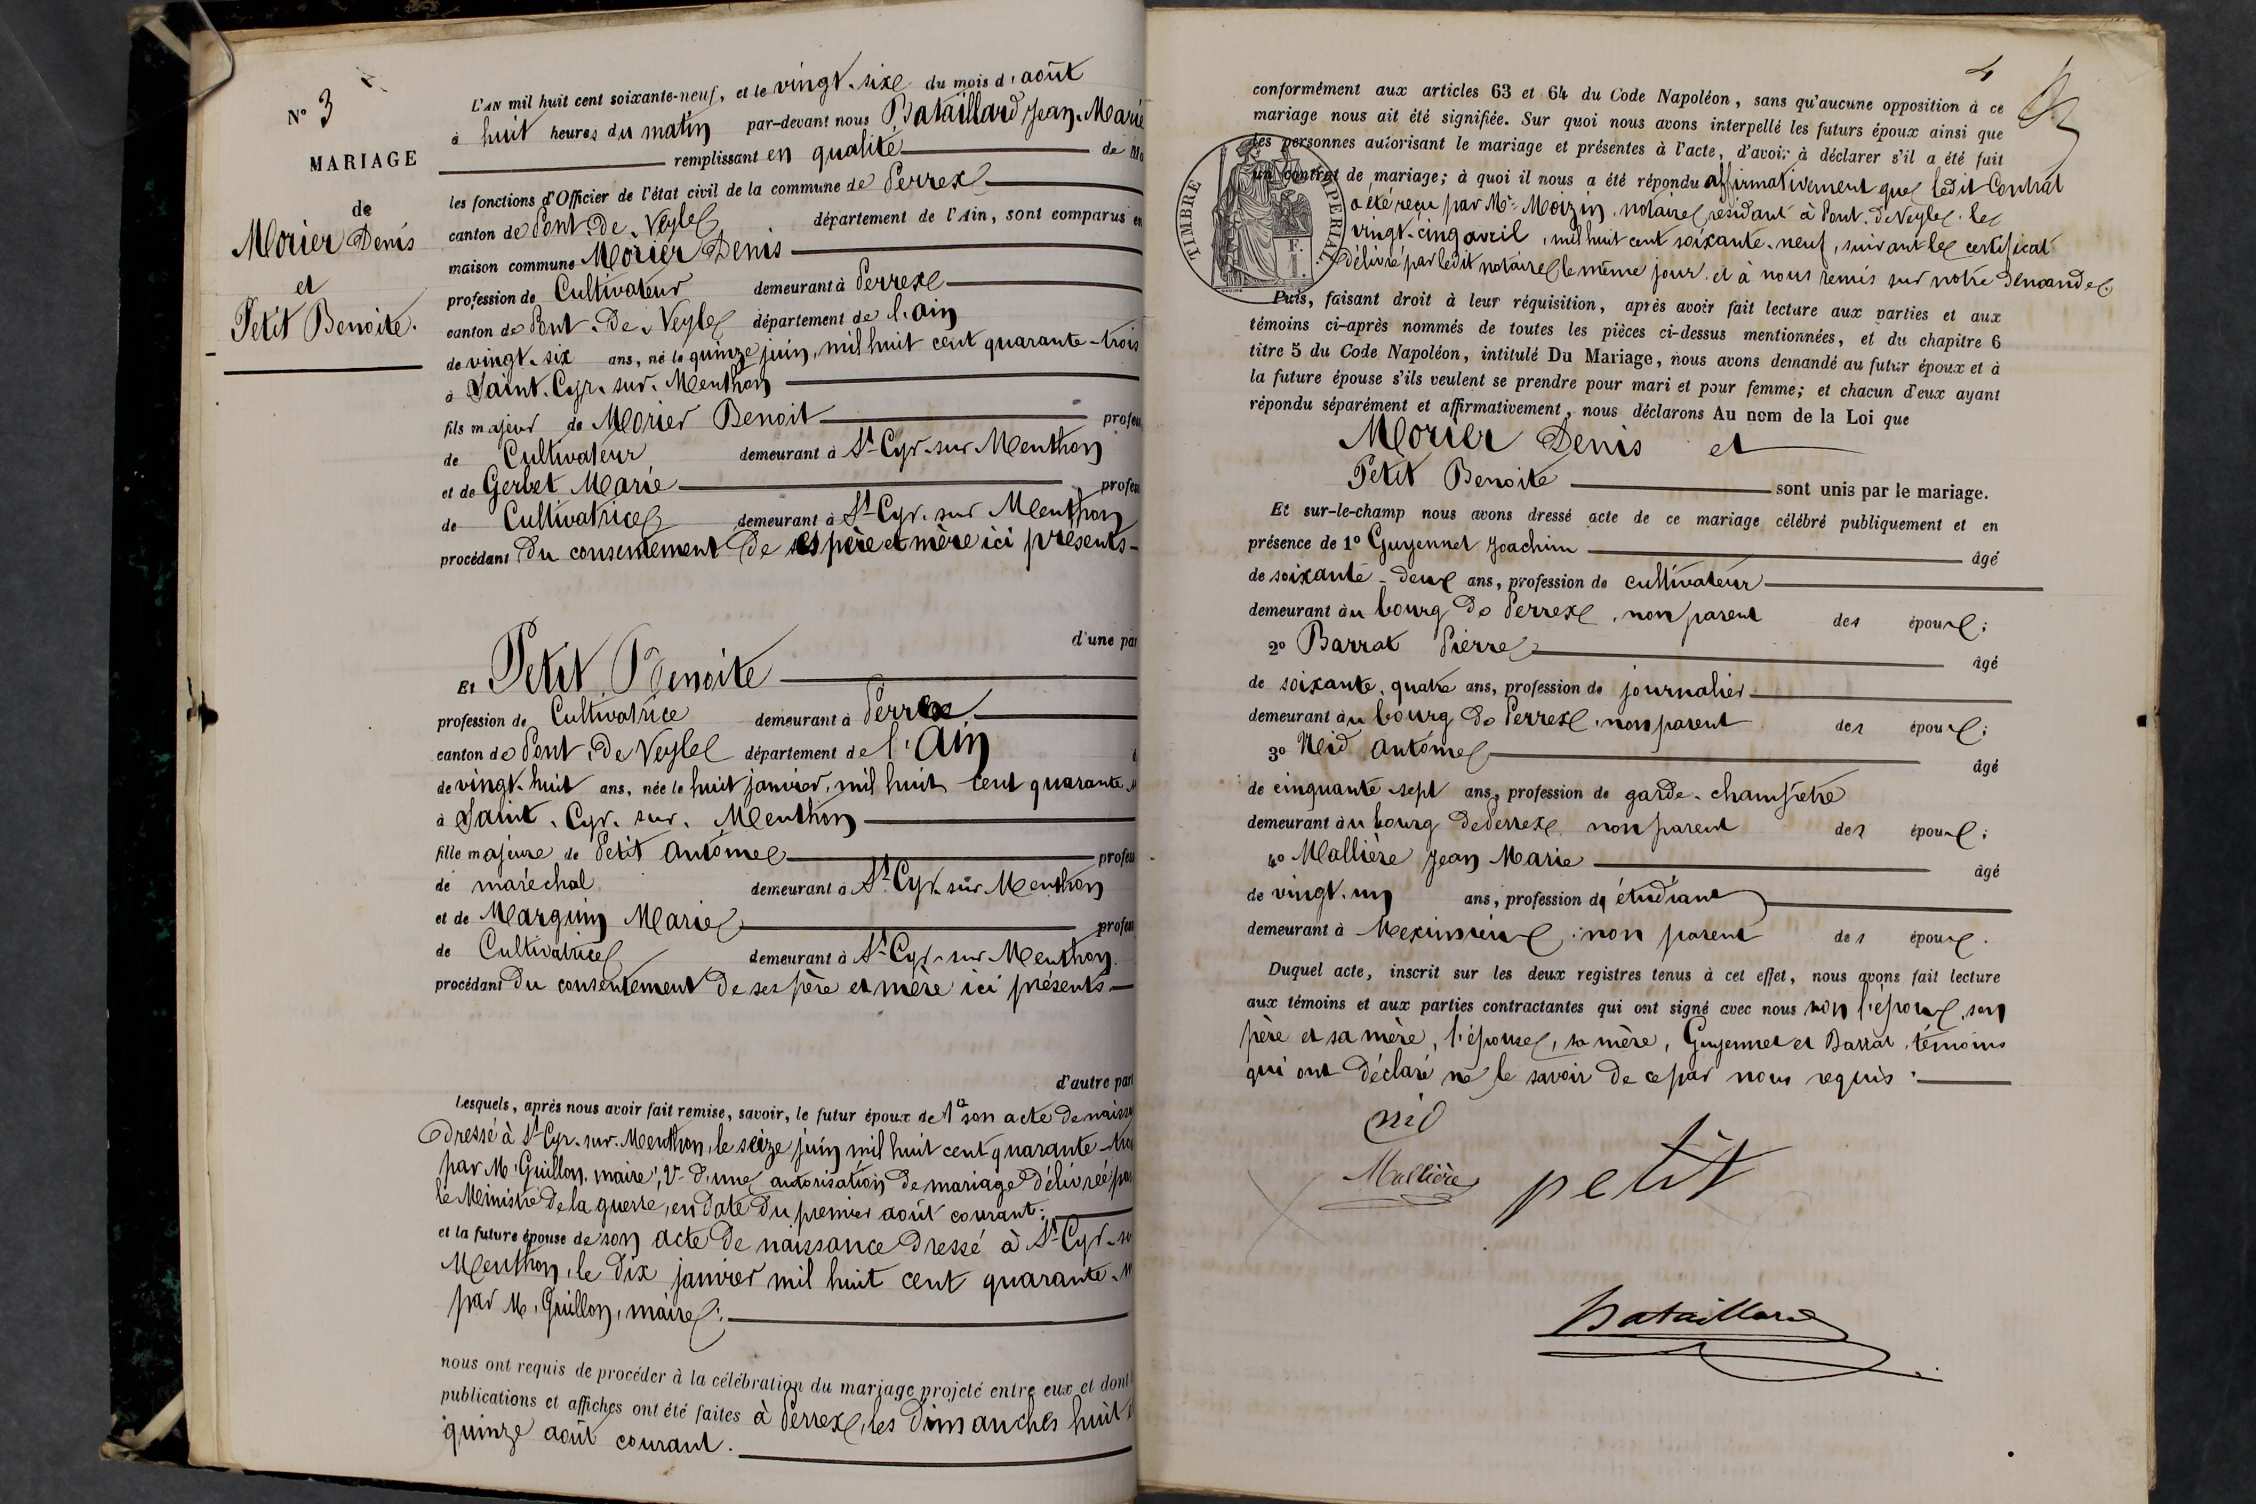 N° 3
MARIAGE
de
Morier Denis
et
Petit Benoite.
L'AN mil huit cent soixante-neuf, et le vingt-six du mois d'août
à huit heures du matin par-devant nous Bataillard Jean-Marie
remplissant en qualité de Ma
les fonctions d'Officier de l'état civil de la commune de Perrex
canton de Pont-de-Veyle département de l'Ain, sont comparus en
maison commune Morier Denis
profession de Cultivateur demeurant à Perrex
canton de Pont-de-Veyle département de l'ain
de vingt-six ans, né le quinze juin, mil huit cent quarante-trois
à Saint-Cyr-sur-Menthon
fils majeur de Morier Benoit profes
de Cultivateur demeurant à St Cyr-sur Menthon
et de Gerbet Marie profes
de Cultivatrice demeurant à St Cyr-sur Menthon
procédant du consentement de ses père et mère ici présents
d'une par
Et Petit Benoite
profession de Cultivatrice demeurant à Perrex
canton de Pont-de-Veyle département de l'Ain
de vingt-huit ans, née le huit janvier, mil huit cent quarante
à Saint-Cyr-sur-Menthon
fille majeure de Petit Antoine profes
de maréchal demeurant à St Cyr-sur Menthon
et de Marguin Marie profes
de Cultivatrice demeurant à St Cyr-sur Menthon.
procédant du consentement de ses père et mère ici présents
d'autre part
Lesquels, après nous avoir fait remise, savoir, le futur époux de 1° son acte de naiss
dressé à St Cyr-sur-Menthon, le seize juin mil huit cent quarante-troi
par Mr Guillon, maire; 2° d'une autorisation de mariage délivrée par
le Ministre de la guerre, en date du premier août courant;
et la future épouse de son acte de naissance dressé à St Cyr-su
Menthon, le dix janvier mil huit cent quarante
par M. Guillon, maire;
nous ont requis de procéder à la célébration du mariage projeté entre eux et dont
publications et affiches ont été faites à Perrex, les dimanches huit
quinze août courant.
4
conformément aux articles 63 et 64 du Code Napoléon, sans qu'aucune opposition à ce
mariage nous ait été signifiée. Sur quoi nous avons interpellé les futurs époux ainsi que
les personnes autorisant le mariage et présentes à l'acte, d'avoir à déclarer s'il a été fait
un contrat de mariage; à quoi il nous a été répondu affirmativement que ledit Contrat
a été reçu par Me Moizin, notaire, résidant à Pont-de-Veyle, le
vingt-cinq avril, mil huit cent soixante-neuf, suivant le certificat
délivré par ledit notaire le même jour et à nous remis sur notre demande.
TIMBRE IMPERIAL
Puis, faisant droit à leur réquisition, après avoir fait lecture aux parties et aux
témoins ci-après nommés de toutes les pièces ci-dessus mentionnées, et du chapitre 6
titre 5 du Code Napoléon, intitulé Du Mariage, nous avons demandé au futur époux et à
la future épouse s'ils veulent se prendre pour mari et pour femme; et chacun d'eux ayant
répondu séparément et affirmativement, nous déclarons Au nom de la Loi que
Morier Denis et
Petit Benoite sont unis par le mariage.
Et sur-le-champ nous avons dressé acte de ce mariage célébré publiquement et en
présence de 1° Guyennet Joachim âgé
de soixante-deux ans, profession de cultivateur
demeurant au bourg de Perrex, non parent des époux;
2° Barrat Pierre âgé
de soixante-quatre ans, profession de journalier
demeurant au bourg de Perrex, non parent des époux;
3° Nid Antoine âgé
de cinquante-sept ans, profession de garde-champêtre
demeurant au bourg de Perrex, non parent des époux;
4° Mallière Jean Marie âgé
de vingt-un ans, profession d' étudiant
demeurant à Meximieux, non parent des époux.
Duquel acte, inscrit sur les deux registres tenus à cet effet, nous avons fait lecture
aux témoins et aux parties contractantes qui ont signé avec nous non l'époux, son
père et sa mère, l'épouse, sa mère, Guyennet et Barrat, témoins
qui ont déclaré ne le savoir de ce par nous requis.
nid
Mallière petit
Bataillard